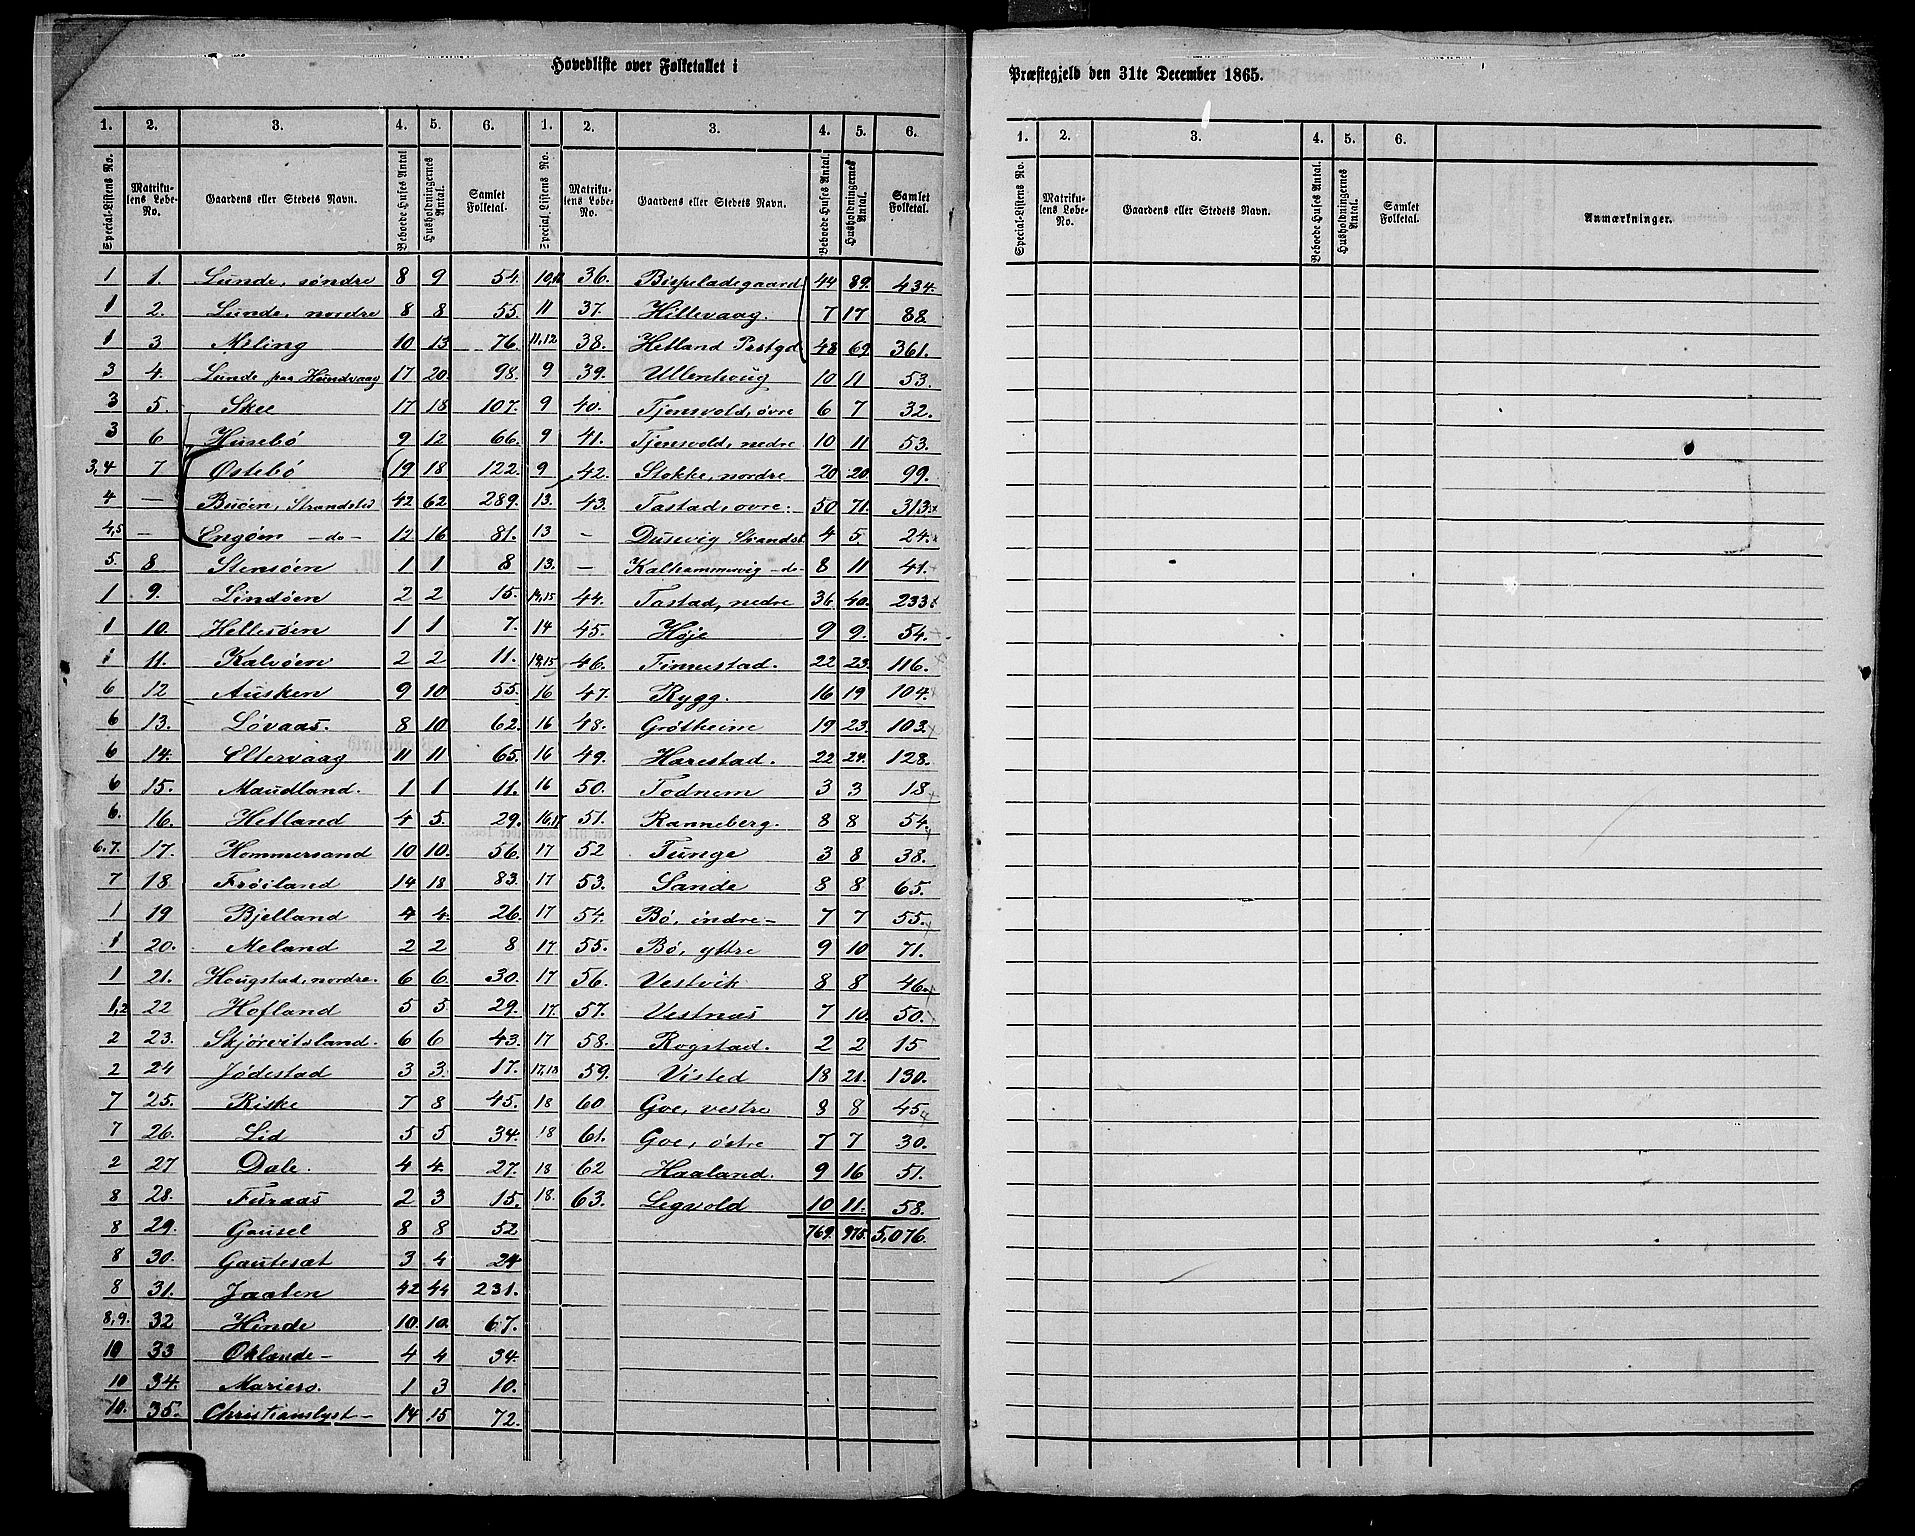 Hovedliste over Folketallet i
Præstegjeld den 31te December 1865.
1. 2. 3. 4. 5. 6. 1. 2. 3. 4. 5. 6.
Special-Listens No. Matrikulens Løbe-No. Gaardens eller Stedets Navn. Beboede Huses Antal Husholdningernes Antal. Samlet Folketal. Special-Listens No. Matrikulens Løbe-No. Gaardens eller Stedets Navn. Beboede Huses Antal. Husholdningernes Antal. Samlet Folketal.
1 1. Lunde, søndre 8 9 54. 10,11 36. Bispeladegaard 44 89. 434.
1 2. Lunde, nordre 8 8 55. 11 37. Hillevaag. 7 17 88
1 3 Meling 10 13 76. 11,12 38. Hetland Prstgd 48 69 361.
3 4. Lunde paa Hundvaag 17 20. 98. 9 39. Ullenhoug 10 11 53.
3 5. Skee 17 18 107. 9 40. Tjensvold, øvre 6 7 32.
3 6 Husebö 9 12 66. 9 41. Tjensvold, nedre 10 11 53.
3,4 7 Østebö 19 18 122. 9 42. Stokke, nordre 20 20. 99.
4 — Buöen, Strandsted 42 62 289. 13. 43. Tastad, øvre. 50 71. 313
4,5 — Engöen —do— 12 16 81. 13 — Dusevig Strandst. 4 5. 24.
5. 8 Stensöen 1 1 8 13. — Kalhammervig —do— 8 11 41.
1 9. Lindöen 2 2 15. 14,15 44. Tastad, nedre 36 40. 233
1 10. Hellesöen 1 1 7. 14 45. Høje 9 9. 54.
1 11. Kalvöen 2 2 11. 14,15 46. Finnestad. 22 23. 116.
6 12 Ausken 9 10 55. 16 47. Rygg. 16 19 104
6 13. Løvaas. 8 10 62. 16 48. Grötheim 19 23. 103.
6 14. Eltervaag 11 11 65. 16 49. Harestad. 22 24. 128.
6 15. Maudland. 1 1 11. 16 50. Todnem 3 3 18
6. 16. Hetland 4 5. 29. 16,17 51. Ranneberg. 8 8 54.
6.7. 17. Hommersand 10 10. 56. 17 52 Tunge 3 8 38.
7 18 Fröiland 14 18 83. 17 53. Sande 8 8 65.
1 19 Bjelland 4 4. 26. 17 54. Bö, indre— 7 7 55.
1 20. Meland 2 2 8 17 55. Bö, yttre 9 10 71.
1 21. Hougstad, nordre. 6 6. 30. 17 56. Vestvik 8 8 46.
1,2 22 Hofland 5 5 29. 17. 57. Vestnæs 7 10. 50.
2 23. Skjörvitsland. 6 6 43. 17 58. Rogstad. 2 2 15
2 24 Jödestad 3 3. 17. 17,18 59. Visted 18 21. 130.
7 25. Riske 7 8 45. 18 60. Goe, vestre 8 8 45
7 26. Lid 5 5 34. 18 61. Goe, östre 7 7 30.
2 27 Dale. 4 4. 27. 18 62 Haaland. 9 16 51.
8 28. Furaas 2 3 15. 18. 63. Legvold 10 11. 58.
8 29. Gausel 8 8 52 769. 975. 5,076.
8 30. Gautesæt 3 4 24
8 31. Jaaten 42 44 231.
8,9. 32 Hinde 10. 10. 67.
10 33 Oklande— 4 4 34.
10 34. Mariero. 1 3 10.
10. 35. Christianslyst— 14 15 72.
1. 2. 3. 4. 5. 6.
Special-Listens No. Matrikulens Løbe-No. Gaardens eller Stedets Navn. Beboede Huses Antal. Husholdningernes Antal. Samlet Folketal. Anmærkninger.